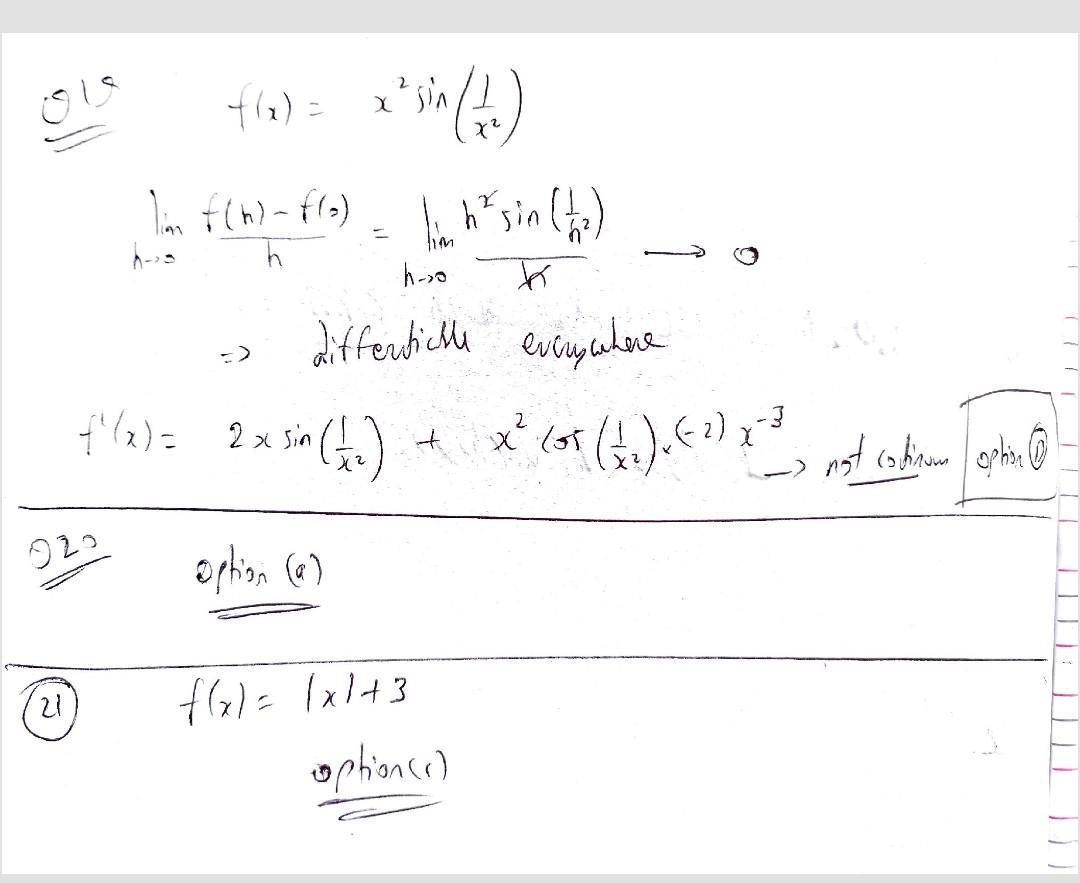 Q19 f(x) = x² sin(1/x²)
lim h->0 (f(h) - f(0))/h = lim h->0 (h² sin(1/h²))/h → 0
=> differtible everywhere
f'(x) = 2x sin(1/x²) + x² cos(1/x²).(-2) x⁻³ → not continuous option D
Q20 option (a)
21 f(x) = |x|+3
option (c)